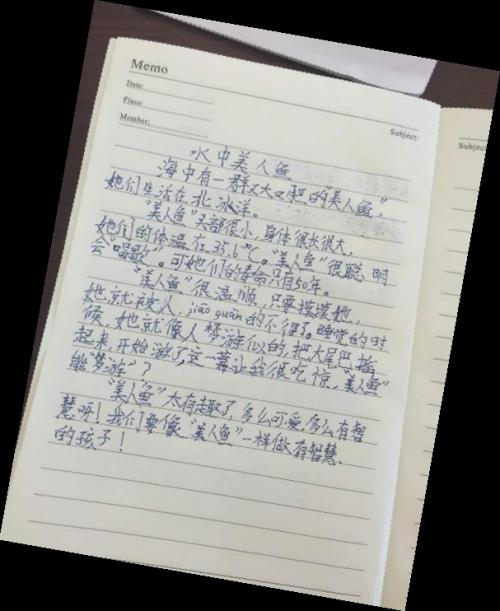 Memo
Date:
Place:
Member:
Subject:
Subject:
水中美人鱼
海中有一群又大又肥的"美人鱼",
她们生活在北冰洋。
"美人鱼"头部很小,身体很长很大,
她们的体温在35.6℃。"美人鱼"很聪明
会"唱歌"。可她们的寿命只有50年。
"美人鱼"很温顺,只要摸摸她,
她就被人jiāo guàn的不得了。睡觉的时
候,她就像人梦游似的,把大尾巴摇
起来,开始游了,这一幕让我很吃惊,"美人鱼"
能"梦游"?
"美人鱼"太有趣了,多么可爱,多么有智
慧呀!我们要像"美人鱼"一样做有智慧
的孩子!